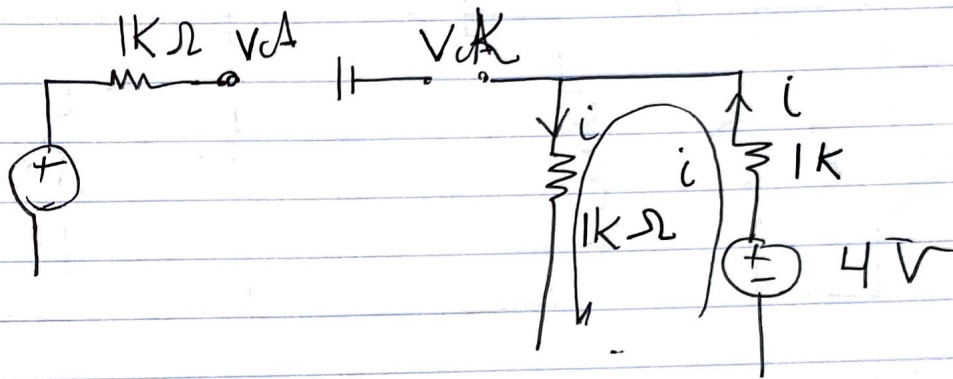 1KΩ VA VK
+
-
i
i
i
1K
1KΩ
+
-
4V